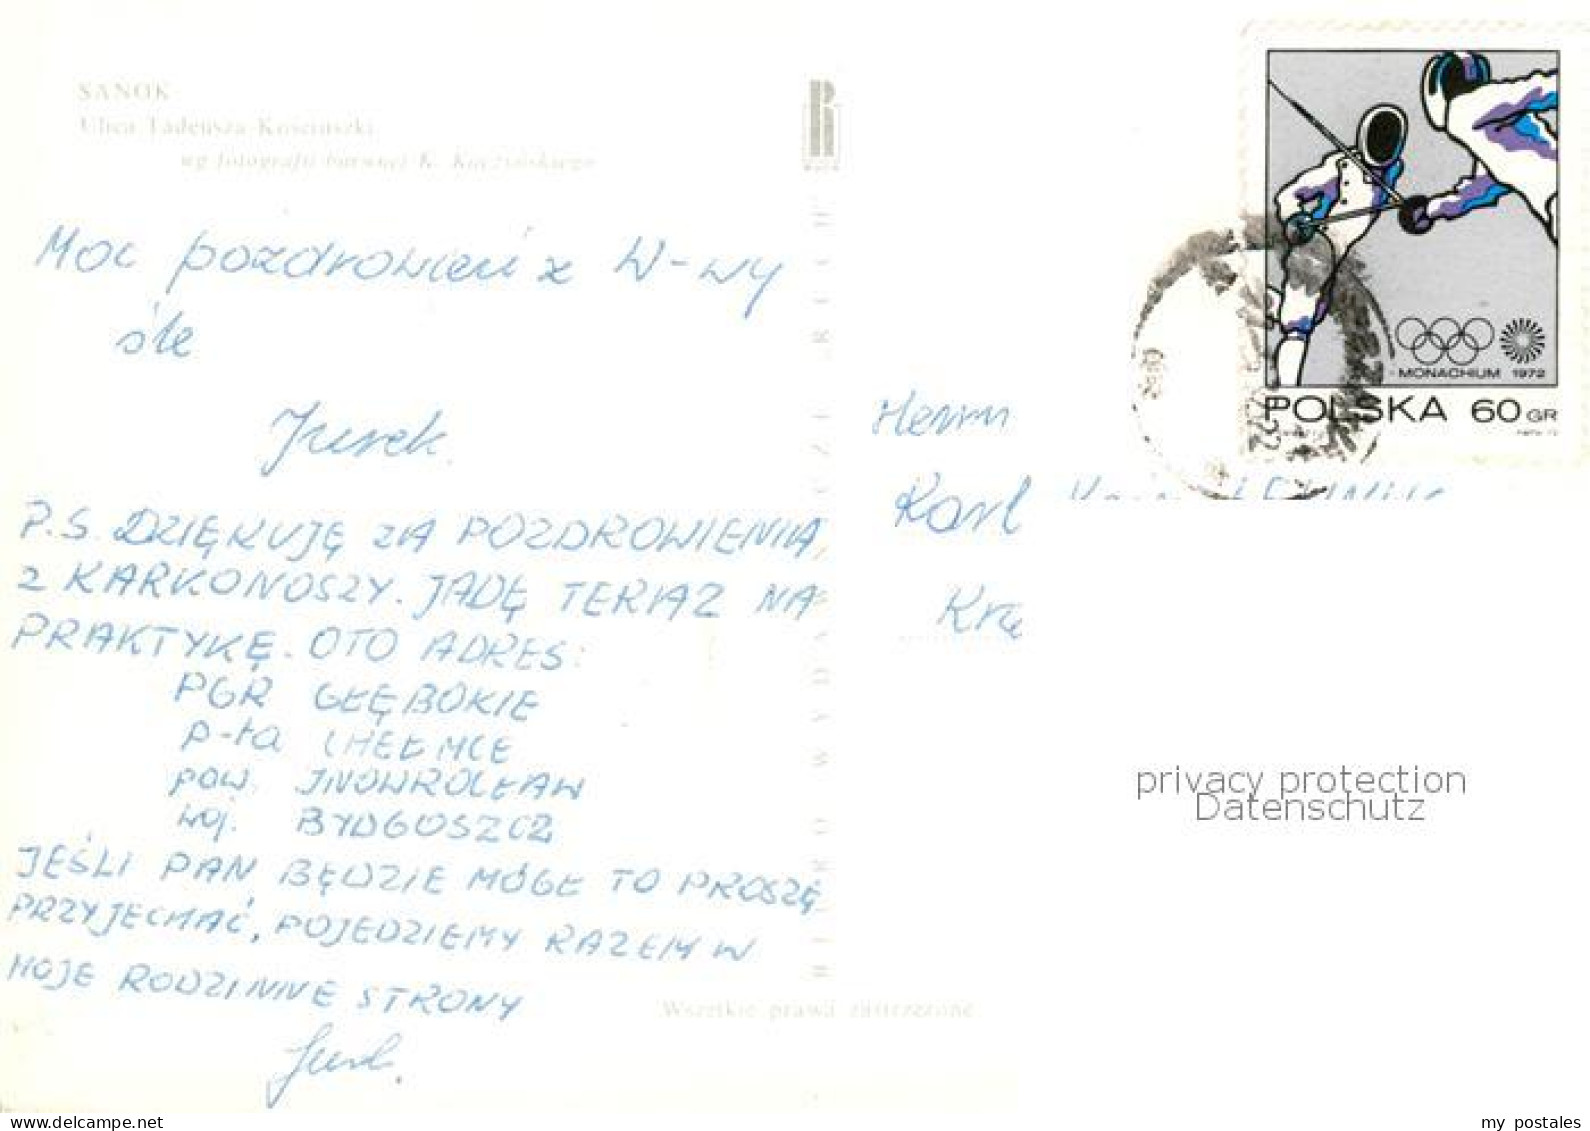 SANOK
Ulica Tadeusza Kościuszki
wg fotografii barwnej K. Kaczyńskiego
RUCH
Moc pozdrowień z W-wy
śle
Jurek.
P.S. DZIĘKUJĘ ZA POZDROWIENIA
Z KARKONOSZY. JADĘ TERAZ NA
PRAKTYKĘ. OTO ADRES:
PGR GŁĘBOKIE
p-ta CHEŁMCE
pow. INOWROCŁAW
woj. BYDGOSZCZ
JEŚLI PAN BĘDZIE MÓGŁ TO PROSZĘ
PRZYJECHAĆ, POJEDZIEMY RAZEM W
MOJE RODZINNE STRONY
Jurek.
Wszelkie prawa zastrzeżone
MONACHIUM 1972
POLSKA 60 GR
Herrn
Karl
privacy protection
Datenschutz
my postales